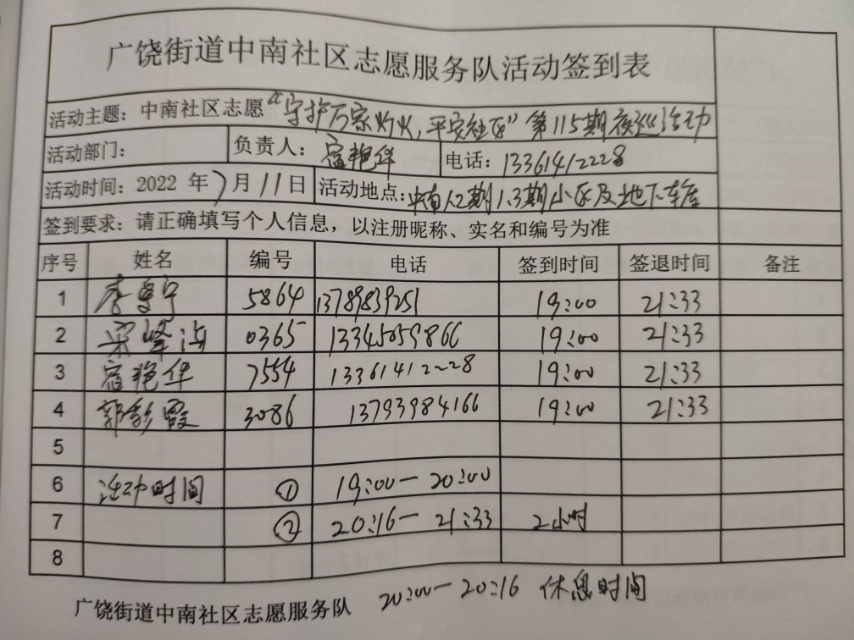 广饶街道中南社区志愿服务队活动签到表
活动主题：中南社区志愿“守护万家灯火，平安社区”第115期夜巡活动
活动部门： 负责人：宿艳华 电话：13361412228
活动时间：2022年7月11日 活动地点：中南1.2期1.3期小区及地下车库
签到要求：请正确填写个人信息，以注册昵称、实名和编号为准
序号 姓名 编号 电话 签到时间 签退时间 备注
1 5864 13789839251 19:00 21:33
2 宋峰海 0365 13345059866 19:00 21:33
3 宿艳华 7554 13361412228 19:00 21:33
4 郭彩霞 3086 13793984166 19:00 21:33
5
6 活动时间 ① 19:00—20:00
7 ② 20:16—21:33 2小时
8
广饶街道中南社区志愿服务队 20:00—20:16 休息时间